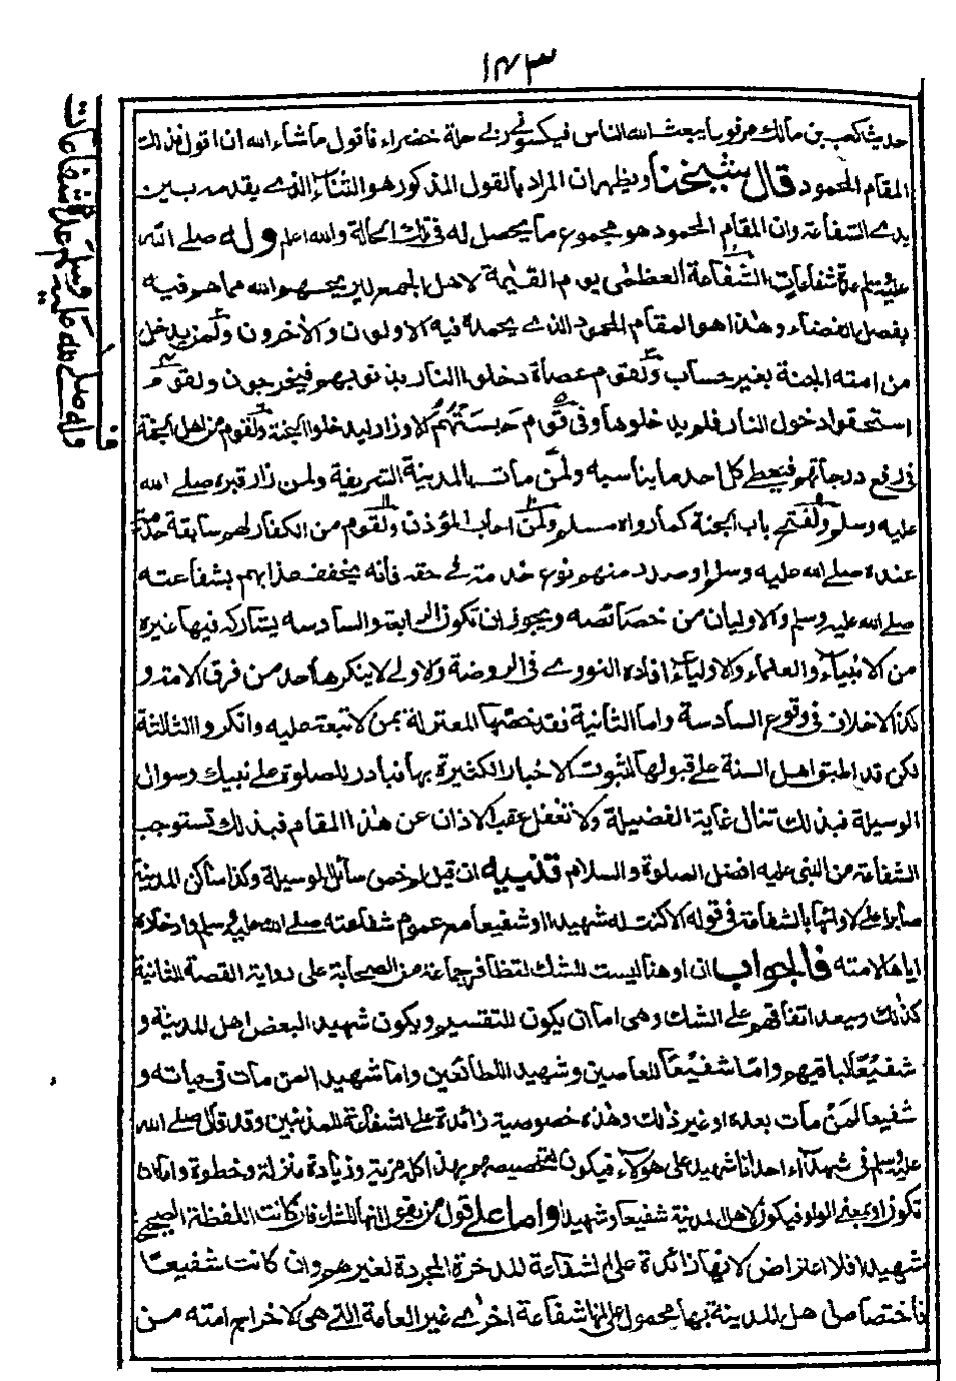 ١٤٣
وله صلى الله عليه وسلم عدة شفاعات
حديث كعب بن مالك مرفوعا يبعث الله الناس فيكسوني ربي حلة خضراء فاقول ما شاء الله ان اقول فذلك
المقام المحمود قال شيخنا ويظهر ان المراد بالقول المذكور هو الثناء الذي يقدمه بين
يدي الشفاعة وان المقام المحمود هو مجموع ما يحصل له في تلك الحالة والله اعلم وله صلى الله
عليه وسلم عدة شفاعات الشفاعة العظمى يوم القيمة لاهل الجمع ليريحهم الله مما هو فيه
بفصل القضاء وهذا هو المقام المحمود الذي يحمده فيه الاولون والاخرون ولمن يدخل
من امته الجنة بغير حساب ولقوم عصاة دخلوا النار بذنوبهم فيخرجون ولقوم
استحقوا دخول النار فلم يدخلوها وفي قوم حبستهم الاوزار ليدخلوا الجنة ولقوم من اهل الجنة
في رفع درجاتهم فيعطى كل احد ما يناسبه ولمن مات بالمدينة الشريفة ولمن زار قبره صلى الله
عليه وسلم ولفتح باب الجنة كما رواه مسلم ولمن اجاب المؤذن ولقوم من الكفار لهم سابقة خدمة
عنده صلى الله عليه وسلم او صدر منهم نوع خدمة في حقه فانه يخفف عذابهم بشفاعته
صلى الله عليه وسلم والاوليان من خصائصه ويجوز ان تكون الرابعة والسادسه يشاركه فيها غيره
من الانبياء والعلماء والاولياء افاده النووي في الروضة والاولى لا ينكرها احد من فرق الامة و
كذا لا خلاف في وقوع السادسة واما الثانية فقد خصها المعتزلة بمن لا تبعة عليه وانكروا الثالثة
لكن قد اطبق اهل السنة على قبولها لثبوت الاخبار الكثيرة بها فبادر للصلوة على نبيك وسوال
الوسيلة فبذلك تنال غاية الفضيلة ولا تغفل عقب الاذان عن هذا المقام فبذلك تستوجب
الشفاعة من النبي عليه افضل الصلوة والسلام تنبيه ان قيل لم خص سائل الوسيلة وكذا ساكن المدينة
صابرا على لاوائها بالشفاعة في قوله الا كنت له شهيدا او شفيعا مع عموم شفاعته صلى الله عليه وسلم وادخاره
اياها لامته فالجواب ان او هنا ليست للشك لتظافر جماعة من الصحابة على رواية القصة الثانية
كذلك ويبعد اتفاقهم على الشك وهي اما ان يكون للتقسيم ويكون شهيدا لبعض اهل المدينة و
شفيعا لباقيهم واما شفيعا للعاصين وشهيدا للطائعين واما شهيدا لمن مات في حياته و
شفيعا لمن مات بعده او غير ذلك وهذه خصوصية زائدة على الشفاعة للمذنبين وقد قال صلى الله
عليه وسلم في شهداء احد انا شهيد على هولاء فيكون لتخصيصهم بهذا كله مزية وزيادة منزلة وخطوة واما ان
تكون او بمعنى الواو فيكون لاهل المدينة شفيعا وشهيدا واما على قول من يقول انها للشك فان كانت اللفظة الصحيحة
شهيدا فلا اعتراض لانها زائدة على الشفاعة المدخرة المجردة لغيرهم وان كانت شفيعا
فاختصاص اهل المدينة بها محمول على انها شفاعة اخرى غير العامة التي هي لاخراج امته من